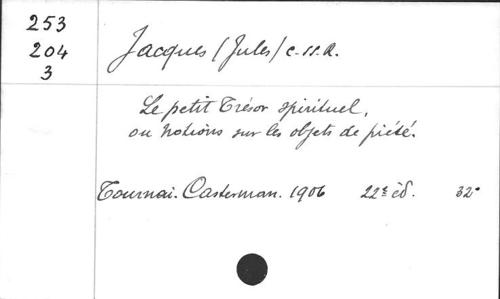 253
204
3
Jacques (Jules) c.ss.R.
Le petit Trésor spirituel,
ou Notions sur les objets de piété.
Tournai. Casterman. 1906 22e éd. 32°